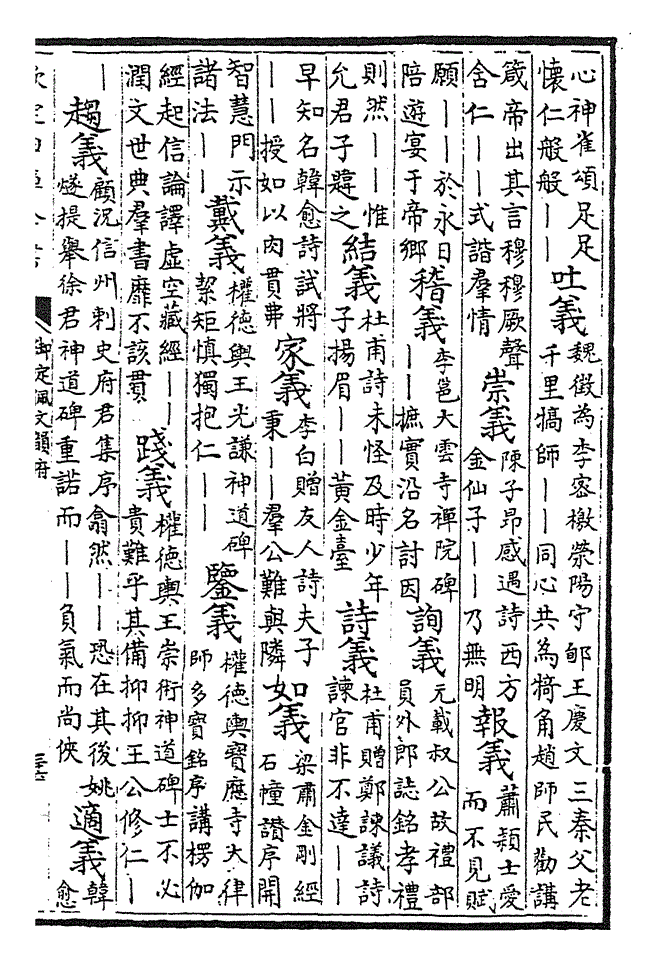 心神雀頌足足
懷仁般般——
吐義
魏徵為李宻檄滎陽守郇王慶文三秦父老
千里犒師——同心共為犄角趙師民勸講
箴帝出其言穆穆厥聲
舍仁——式諧羣情
崇義
陳子昂感遇詩西方
金仙子——乃無明
報義
蕭穎士愛
而不見賦
願——於永日
陪遊宴于帝鄉
稽義
李邕大雲寺禪院碑
——摭實沿名討因
詢義
元載叔公故禮部
員外郎誌銘孝禮
則然——惟
允君子韙之
結義
杜甫詩未怪及時少年
子揚眉——黃金臺
詩義
杜甫贈鄭諫議詩
諫官非不達——
早知名韓愈詩試將
——授如以肉貫弗
家義
李白贈友人詩夫子
秉——羣公難與隣
如義
梁肅金剛經
石幢讃序開
智慧門示
諸法——
戴義
權德輿王光謙神道碑
絜矩慎獨抱仁——
鑒義
權德輿寶應寺大律
師多寶銘序講楞伽
經起信論譯虛空藏經——
潤文世典羣書靡不該貫
踐義
權德輿王崇術神道碑士不必
貴難乎其備抑抑王公修仁—
—
趨義
顧況信州刺史府君集序翕然——恐在其後姚
燧提舉徐君神道碑重諾而——負氣而尚俠
適義
韓
愈
御定佩文韻府